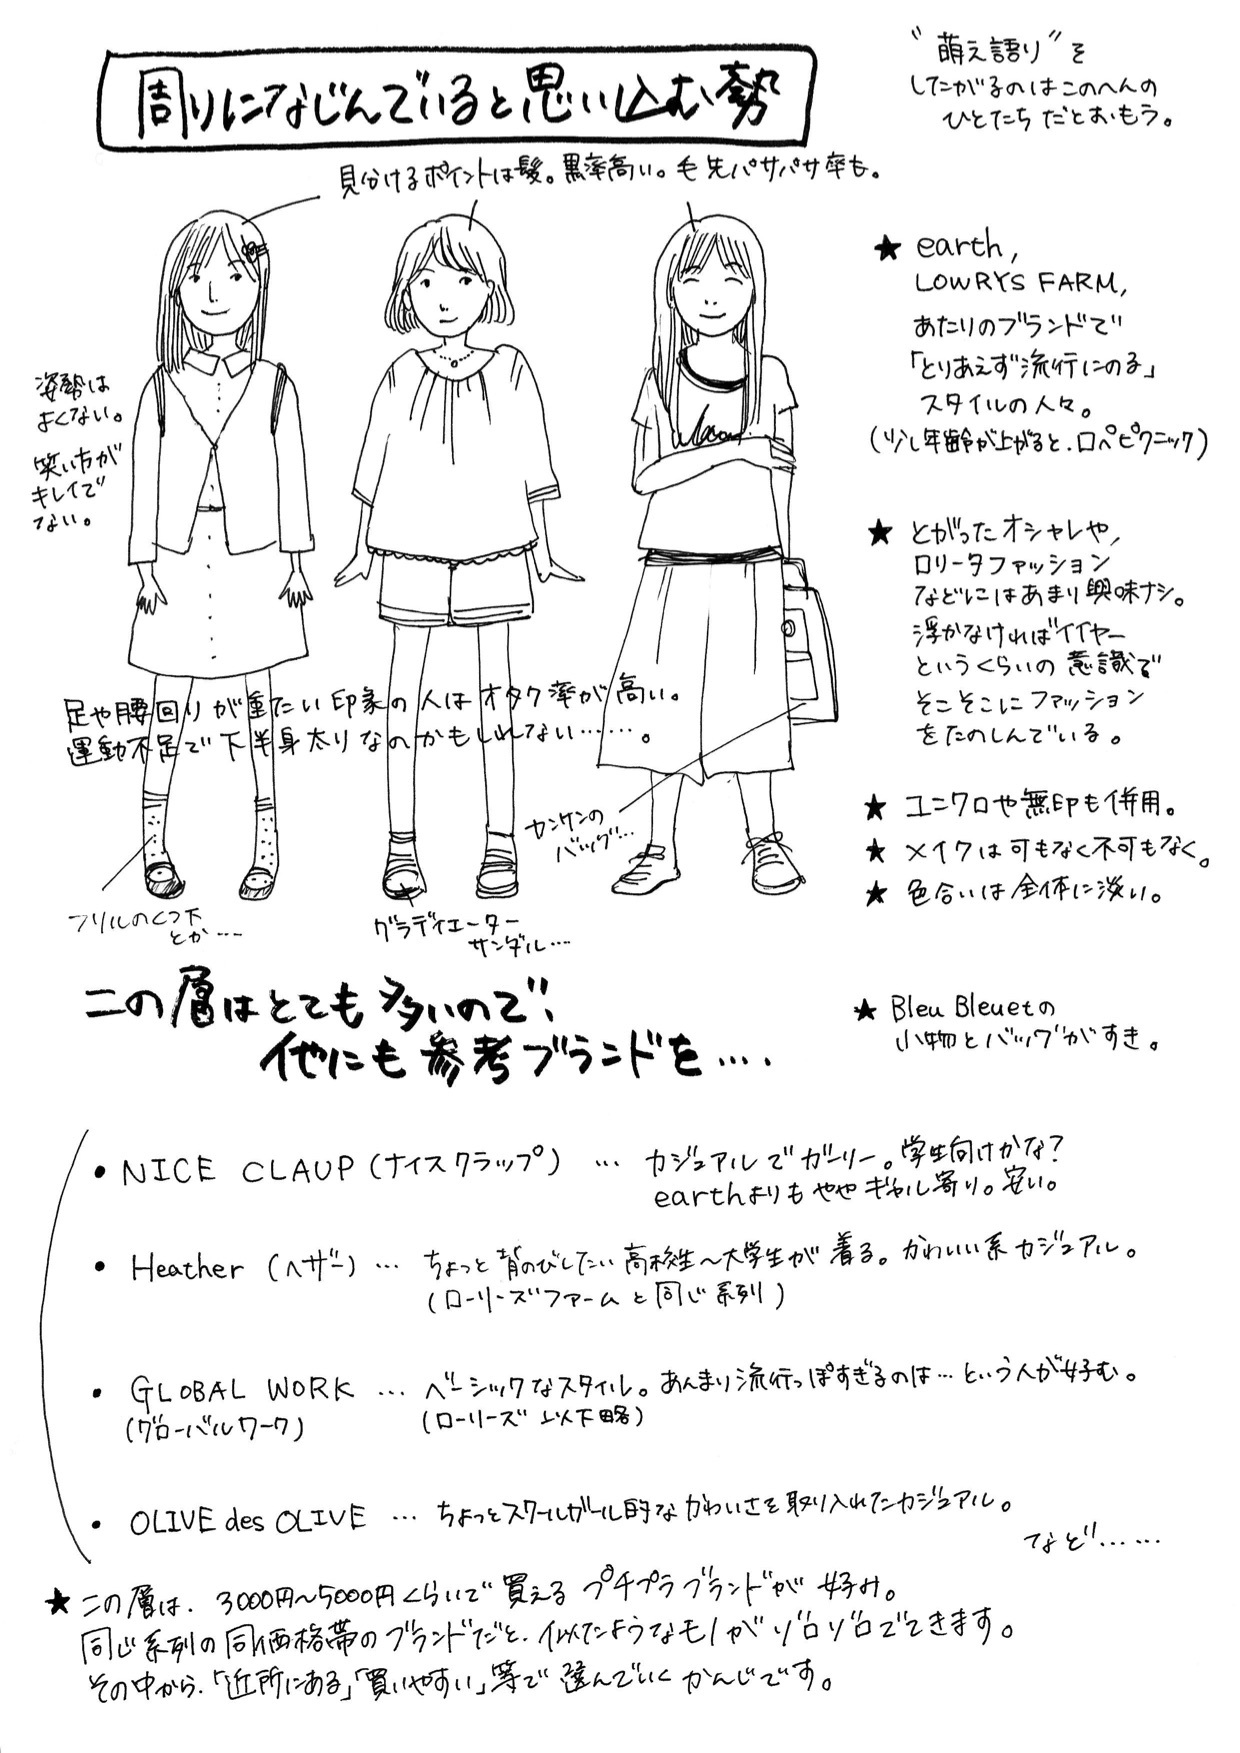 周りになじんでいると思い込む勢
"萌え語り"を
したがるのはこのへんの
ひとたちだとおもう。
見分けるポイントは髪。黒率高い。毛先パサパサ率も。
姿勢は
よくない。
笑い方が
キレイで
ない。
★ earth,
LOWRYS FARM,
あたりのブランドで
「とりあえず流行にのる」
スタイルの人々。
(少し年齢が上がると、ロペピクニック)
★ とがったオシャレや、
ロリータファッション
などにはあまり興味ナシ。
浮かなければイイヤー
というくらいの意識で
そこそこにファッション
をたのしんでいる。
足や腰回りが重たい印象の人はオタク率が高い。
運動不足で下半身太りなのかもしれない……。
★ ユニクロや無印も併用。
★ メイクは可もなく不可もなく。
★ 色合いは全体に淡い。
カンケンの
バッグ…
フリルのくつ下
とか…
グラディエーター
サンダル…
★ Bleu Bleuetの
小物とバッグがすき。
この層はとても多いので、
他にも参考ブランドを….
• NICE CLAUP (ナイスクラップ) … カジュアルでガーリー。学生向けかな?
earthよりもややギャル寄り。安い。
• Heather (ヘザー) … ちょっと背のびしたい高校生〜大学生が着る。かわいい系カジュアル。
(ローリーズファームと同じ系列)
• GLOBAL WORK … ベーシックなスタイル。あんまり流行っぽすぎるのは…という人が好む。
(グローバルワーク) (ローリーズ 以下略)
• OLIVE des OLIVE … ちょっとスクールガール的なかわいさを取り入れたカジュアル。
など……
★ この層は、3000円〜5000円くらいで買えるプチプラブランドが好み。
同じ系列の同価格帯のブランドだと、似たようなモノがゾロゾロでてきます。
その中から、「近所にある」「買いやすい」等で選んでいくかんじです。